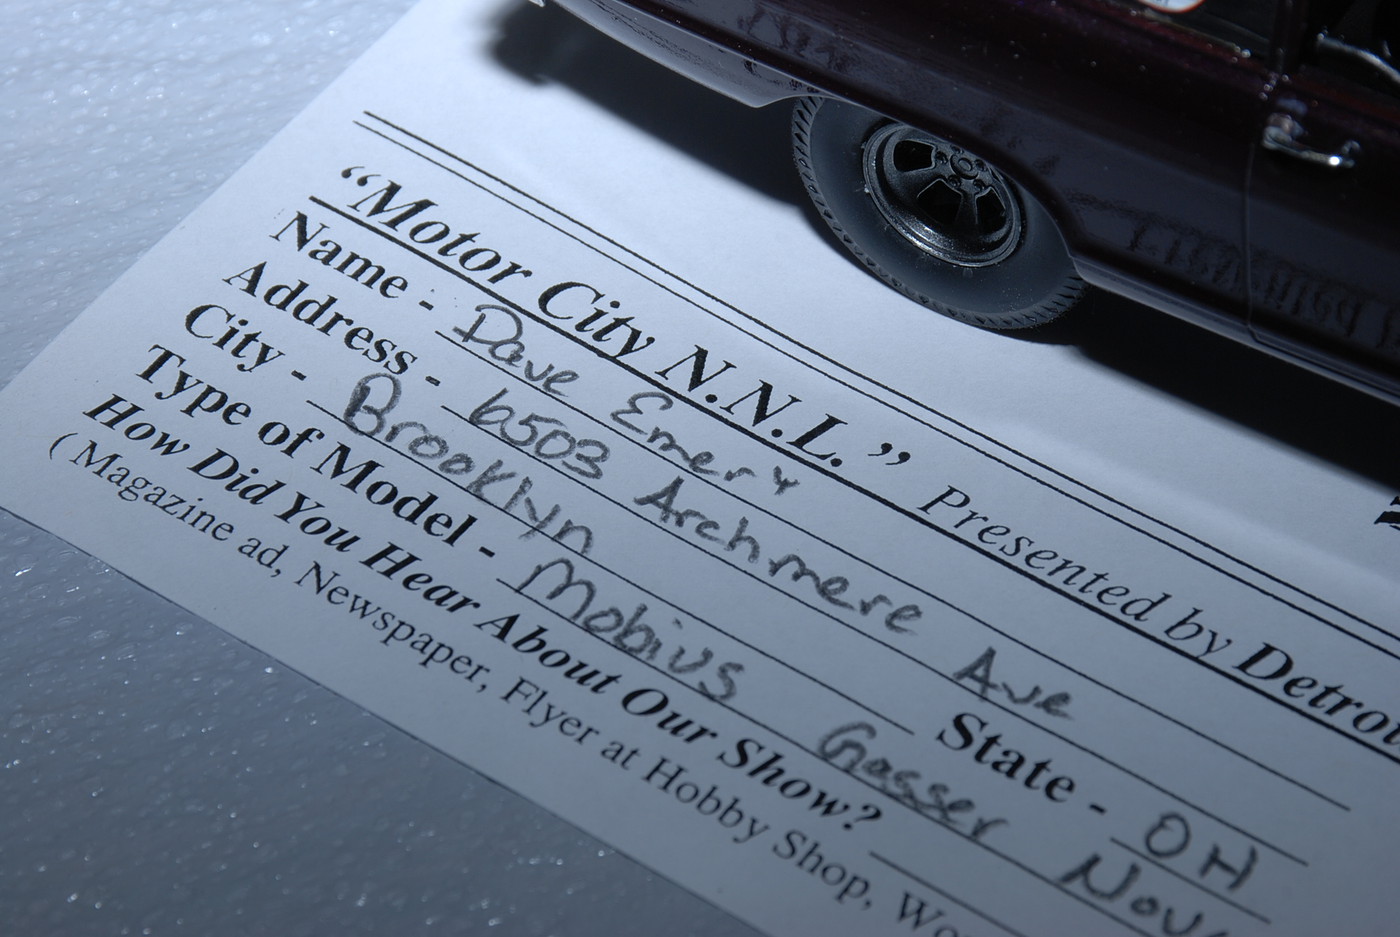 “Motor City N.N.L.” Presented by Detroi
Name - Dave Emery
Address - 6503 Archmere Ave
City - Brooklyn State - OH
Type of Model - Mobius Gasser Nova
How Did You Hear About Our Show?
( Magazine ad, Newspaper, Flyer at Hobby Shop, Wo